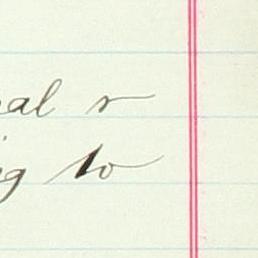 al r
ig to